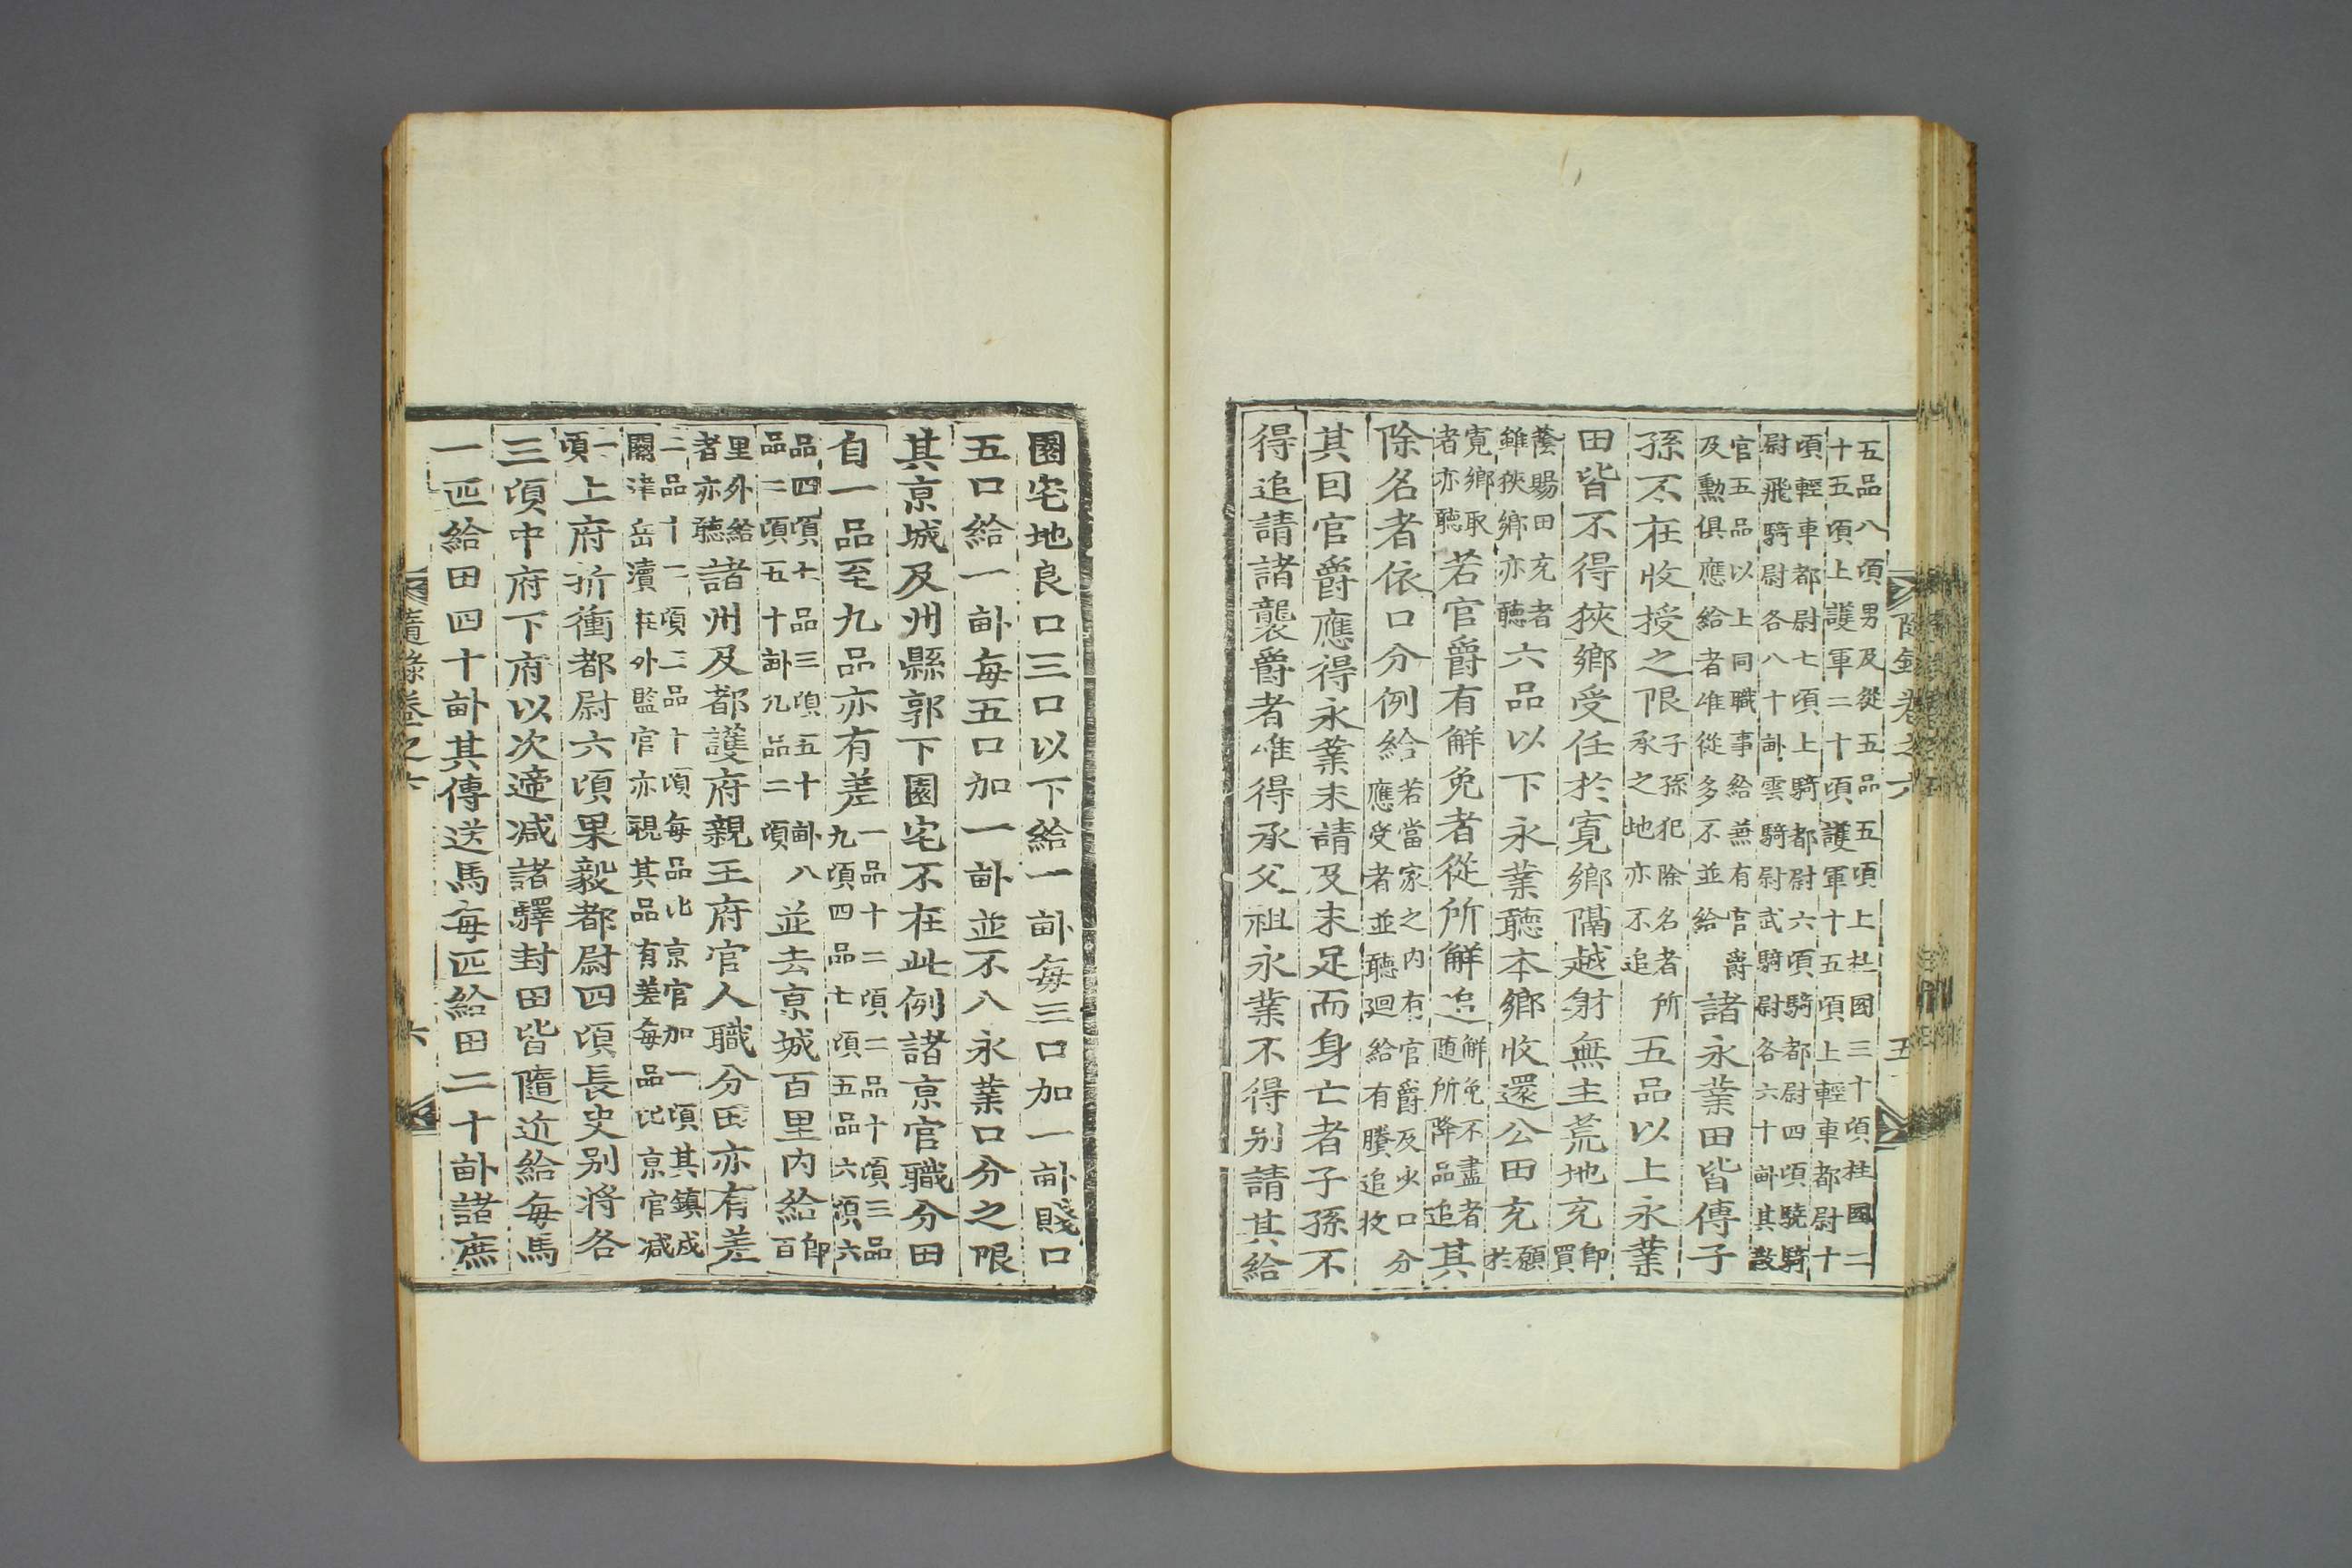 隨錄卷之六 五
五品八頃男及從五品五頃上柱國三十頃柱國二
十五頃上護軍二十頃護軍十五頃上輕車都尉十
頃輕車都尉七頃上騎都尉六頃騎都尉四頃驍騎
尉飛騎尉各八十畝雲騎尉武騎尉各六十畝其散
官五品以上同職事給兼有官爵
及勳俱應給者唯從多不並給
諸永業田皆傳子
孫不在收授之限子孫犯除名者所承之地亦不追五品以上永業
田皆不得狹鄉受任於寬鄉隔越射無主荒地充即買
蔭賜田充者雖狹鄉亦聽六品以下永業聽本鄉收還公田充願於
寬鄉取者亦聽若官爵有觧免者從所觧追觧免不盡者随所降品追其
除名者依口分例給若當家之內有官爵及少口分應受者並聽廻給有賸追收
其因官爵應得永業未請及未足而身亡者子孫不
得追請諸襲爵者唯得承父祖永業不得别請其給
園宅地良口三口以下給一畝每三口加一畝賤口
五口給一畝每五口加一畝並不入永業口分之限
其京城及州縣郭下園宅不在此例諸京官職分田
自一品至九品亦有差一品十二頃二品十頃三品九頃四品七頃五品六頃六
品四頃七品三頃五十畝八品二頃五十畝九品二頃並去京城百里內給即百
里外給者亦聽諸州及都護府親王府官人職分田亦有差
二品十二頃三品十頃每品比京官加一頃其鎮戍
關津岳瀆在外監官亦視其品有差每品比京官減
一頃上府折衝都尉六頃果毅都尉四頃長史别將各
三頃中府下府以次遞減諸驛封田皆隨近給每馬
一匹給田四十畝其傳送馬每匹給田二十畝諸庶
隨錄卷之六 六